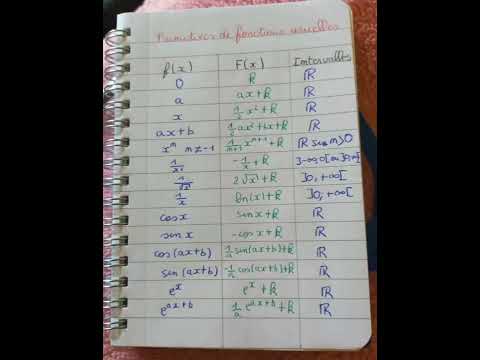 Primitives de fonctions usuelles
f(x) F(x) Intervalles
0 k ℝ
a ax+k ℝ
x 1/2 x² + k ℝ
ax+b 1/2 ax² + bx + k ℝ
xⁿ n≠-1 1/(n+1) xⁿ⁺¹ + k ℝ si n>0
1/x² -1/x + k ]-∞,0[ ou ]0,+∞[
1/√x 2√x + k ]0,+∞[
1/x ln(x)+k ]0,+∞[
cosx sinx+k ℝ
sinx -cosx+k ℝ
cos(ax+b) 1/a sin(ax+b)+k ℝ
sin(ax+b) -1/a cos(ax+b)+k ℝ
eˣ eˣ+k ℝ
eᵃˣ⁺ᵇ 1/a eᵃˣ⁺ᵇ+k ℝ